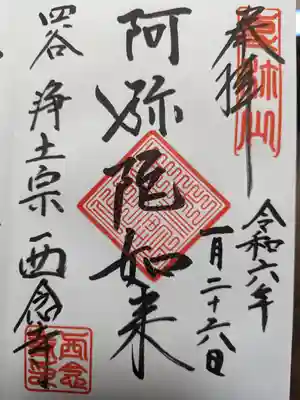 奉拝
令和六年
一月二十六日
阿弥陀如来
四谷 浄土宗 西念寺